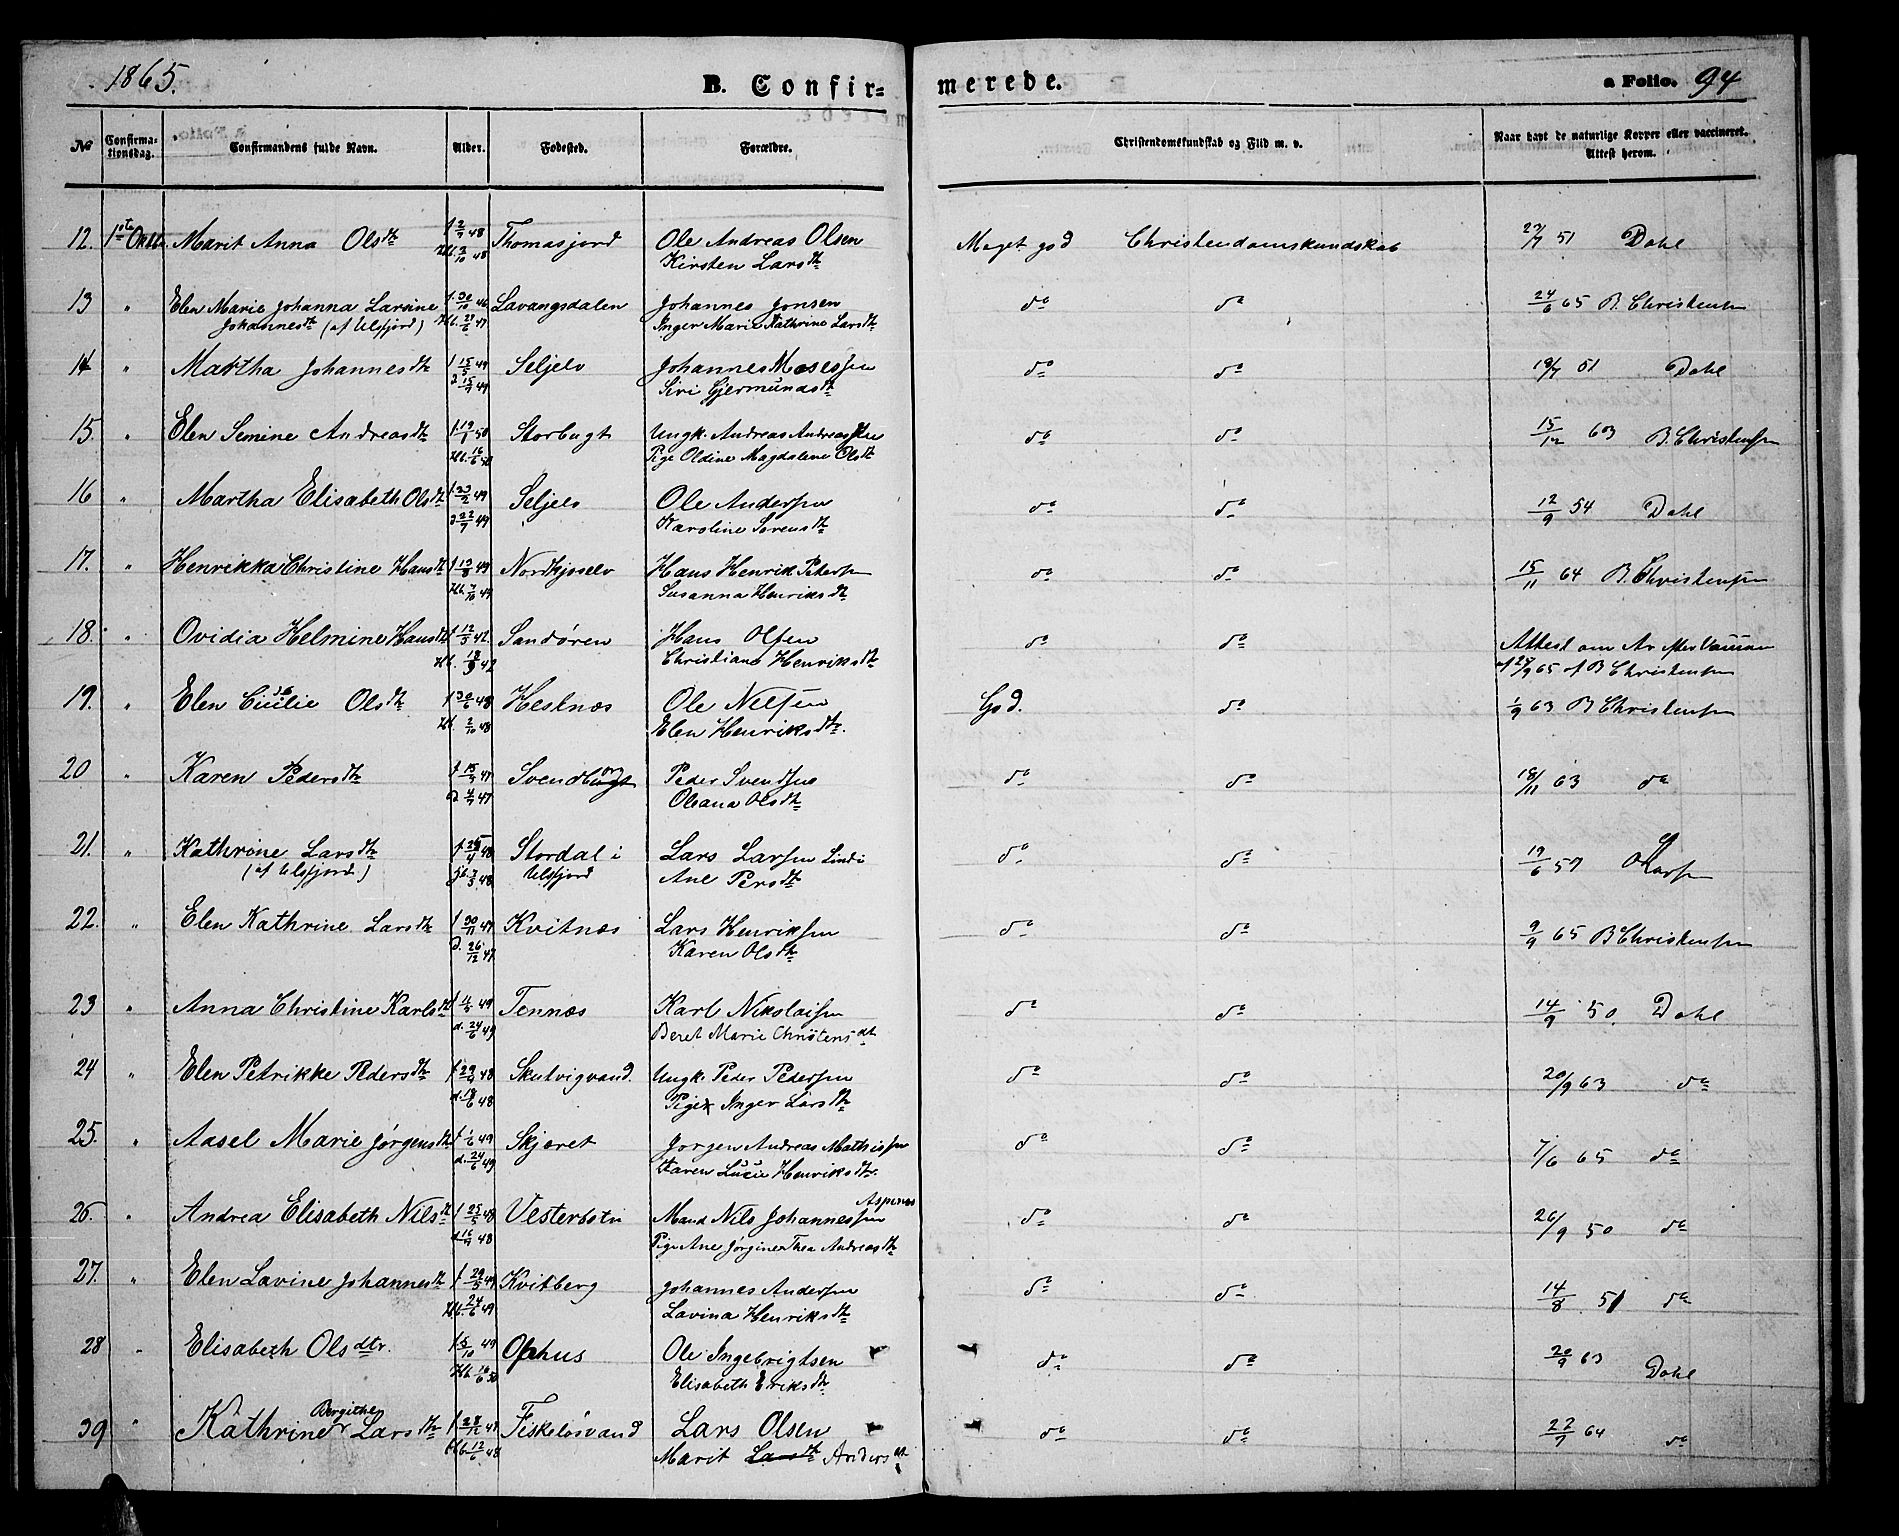 1865.
B. Confir=
merede.
a Folio. 94
No
Confirmationsdag.
Confirmandens fulde Navn.
Alder.
Fødested.
Forældre.
Christendomskundskab og Flid m. v.
Naar havt de naturlige Kopper eller vaccineret. Attest herom.
12. 1ste Octbr Marit Anna Olsdtr f 2/7 48 Thomasjord Ole Andreas Olsen Maget god Christendomskundskab 51 Dahl
Kirsten Larsdtr
13 " Elen Marie Johanna Larsine f 30/10 46 Lavangsdalen Johannes Jonsen do do 24/6 65 B. Christensen
Johannesdtr (af Ulsfjord) Inger Marie Kathrine Larsdtr
14 " Martha Johannesdtr f 15/5 49 Seljelv Johannes Mosessen do do 19/7 51 Dahl
d 15/7 49 Siri Gjermundsdtr
15. " Elen Semine Andreasdtr f 19/1 50 Storbugt Ungk. Andreas Andreassen do do 15/12 63 B. Christensen
Pige Oldine Magdalene Olsdtr
16 " Martha Elisabeth Olsdtr 49 Seljelv Ole Andersen do do 12/9 54 Dahl
d 22/7 49 Karoline Sørensdtr
17. " Henrikka Christine Hansdtr f 19/8 49 Nordkjoselv Hans Henrik Petersen do do 15/11 64 B. Christensen
Susanna Henriksdtr
18. " Ovidia Helmine Hansdtr f 12/5 42. Sandøren Hans Olsen do do Attest om Ar efter Vaccine
42 Christiane Henriksdtr af 24/9 65 af B Christensen
19. " Elen Cicilie Olsdtr f 30/6 48 Hestnæs Ole Nilsen God. do 1/9 63 B Christensen
2/10 48 Elen Henriksdtr.
20 " Karen Pedersdtr 47 Svendborgt Peder Svendsen do do 18/11 63 do
47 Oleana Olsdtr
21. " Kathrine Larsdtr 48 Stordal i Lars Larsen Lindi do do 19/6 57 Karsen
(af Ulsfjord) 48 Ulsfjord Ane Persdtr
22. " Elen Kathrine Larsdtr f 30/11 47 Kvitnæs Lars Henriksen do do 9/9 65 B Christensen
d. 26/12 47 Karen Olsdtr
23 " Anna Christine Karlsdtr 49 Tennæs Karl Nikolaisen do do 14/9 50. Dahl
d. 24/6 49 Beret Marie Christensdt
24 " Elen Petrikke Pedersdtr 48 Skutvigvand. Ungk. Peder Pedersen do do 20/9 63 do
48 Pige Inger Larsdtr
25. " Aasel Marie Jørgensdtr f 1/6 49 Skjæret Jørgen Andreas Mathissen do do 7/6 65 do
d. 24/6 49 Karen Lucie Henriksdtr.
26. " Andrea Elisabeth Nilsdtr f 25/5 48 Vesterbotn Mand Nils Johannessen Aspenes do do 26/9 50 do
48 Pige Ane Jørgine Thea Andreasdtr
27. " Elen Lavine Johannesdtr f 29/5 49 Kvitberg Johannes Andersen do do 14/8 51 do
24/6 49 Lavina Henriksdtr
28 " Elisabeth Olsdtr. f 5/10 49 Ophus Ole Ingebrigtsen do do 20/9 63 Dahl
Elisabeth Eriksdtr
39 " Kathrine Bergithe Larsdtr 47 Fiskeløsvand Lars Olsen do do 22/7 64 do
12/6 48 Marit Larsdtr Andersdt